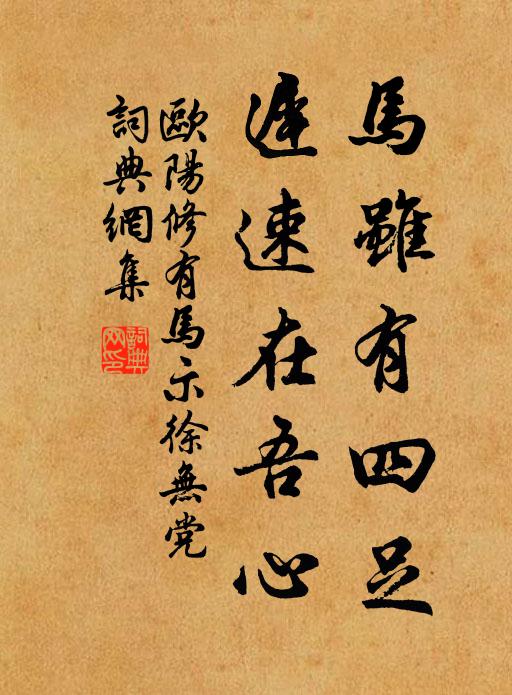 馬雖有四足
遲速在吾心
歐陽修有馬示徐無党
詞典網集
詞典網印